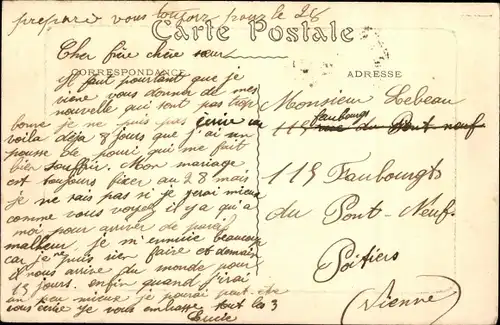 prepare vous toujour pour le 28
Carte Postale
CORRESPONDANCE
ADRESSE
Cher frère chère sœur
Il faut pourtant que je
viene vous donner de mes
nouvelle qui sont pas trop
bonne je ne puis pas écrire
voila déja 8 jours que j'ai un
pousse de pourri qui me fait
bien souffrir. Mon mariage
est toujours fixer au 28 mais
je ne sais pas si je serai mieux
comme vous voyez il y a qu'a
moi pour ariver de pareil
malheur, je m'ennuie beaucoup
car je ne puis rien faire et demain
il nous arive du monde pour
15 jours. enfin quand j'irai
un peu mieux je pourai peut-etre
vous écrire je vous embrasse tout les 3
Lucie
Monsieur Lebeau
115 faubourgs
rue du Pont neuf
115 Faubourgts
du Pont-Neuf.
Poitiers
(Vienne)